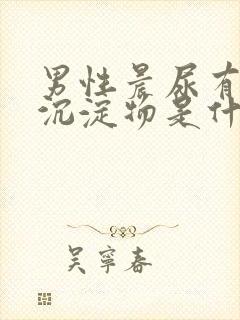 男性晨尿有
沉淀物是什
吴寧春